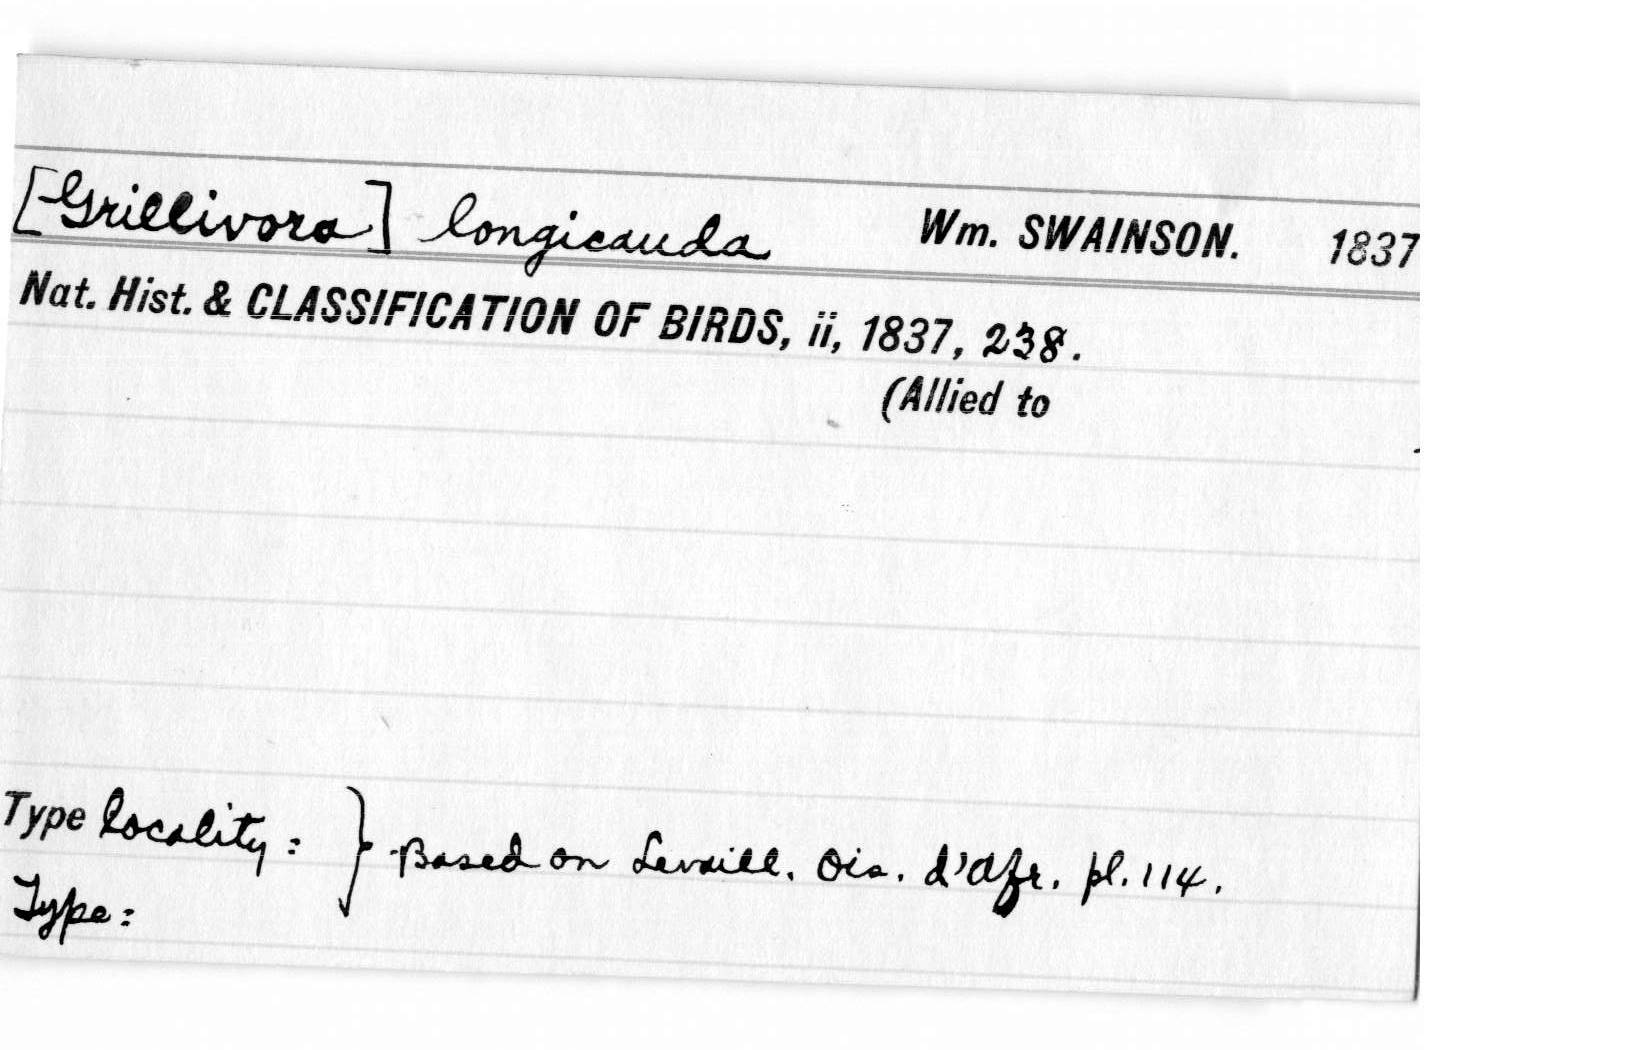 [Grillivora] longicauda Wm. SWAINSON. 1837
Nat. Hist. & CLASSIFICATION OF BIRDS, ii, 1837, 238.
(Allied to
Type locality: } Based on Levaill. Ois. d'Afr. pl. 114.
Type: